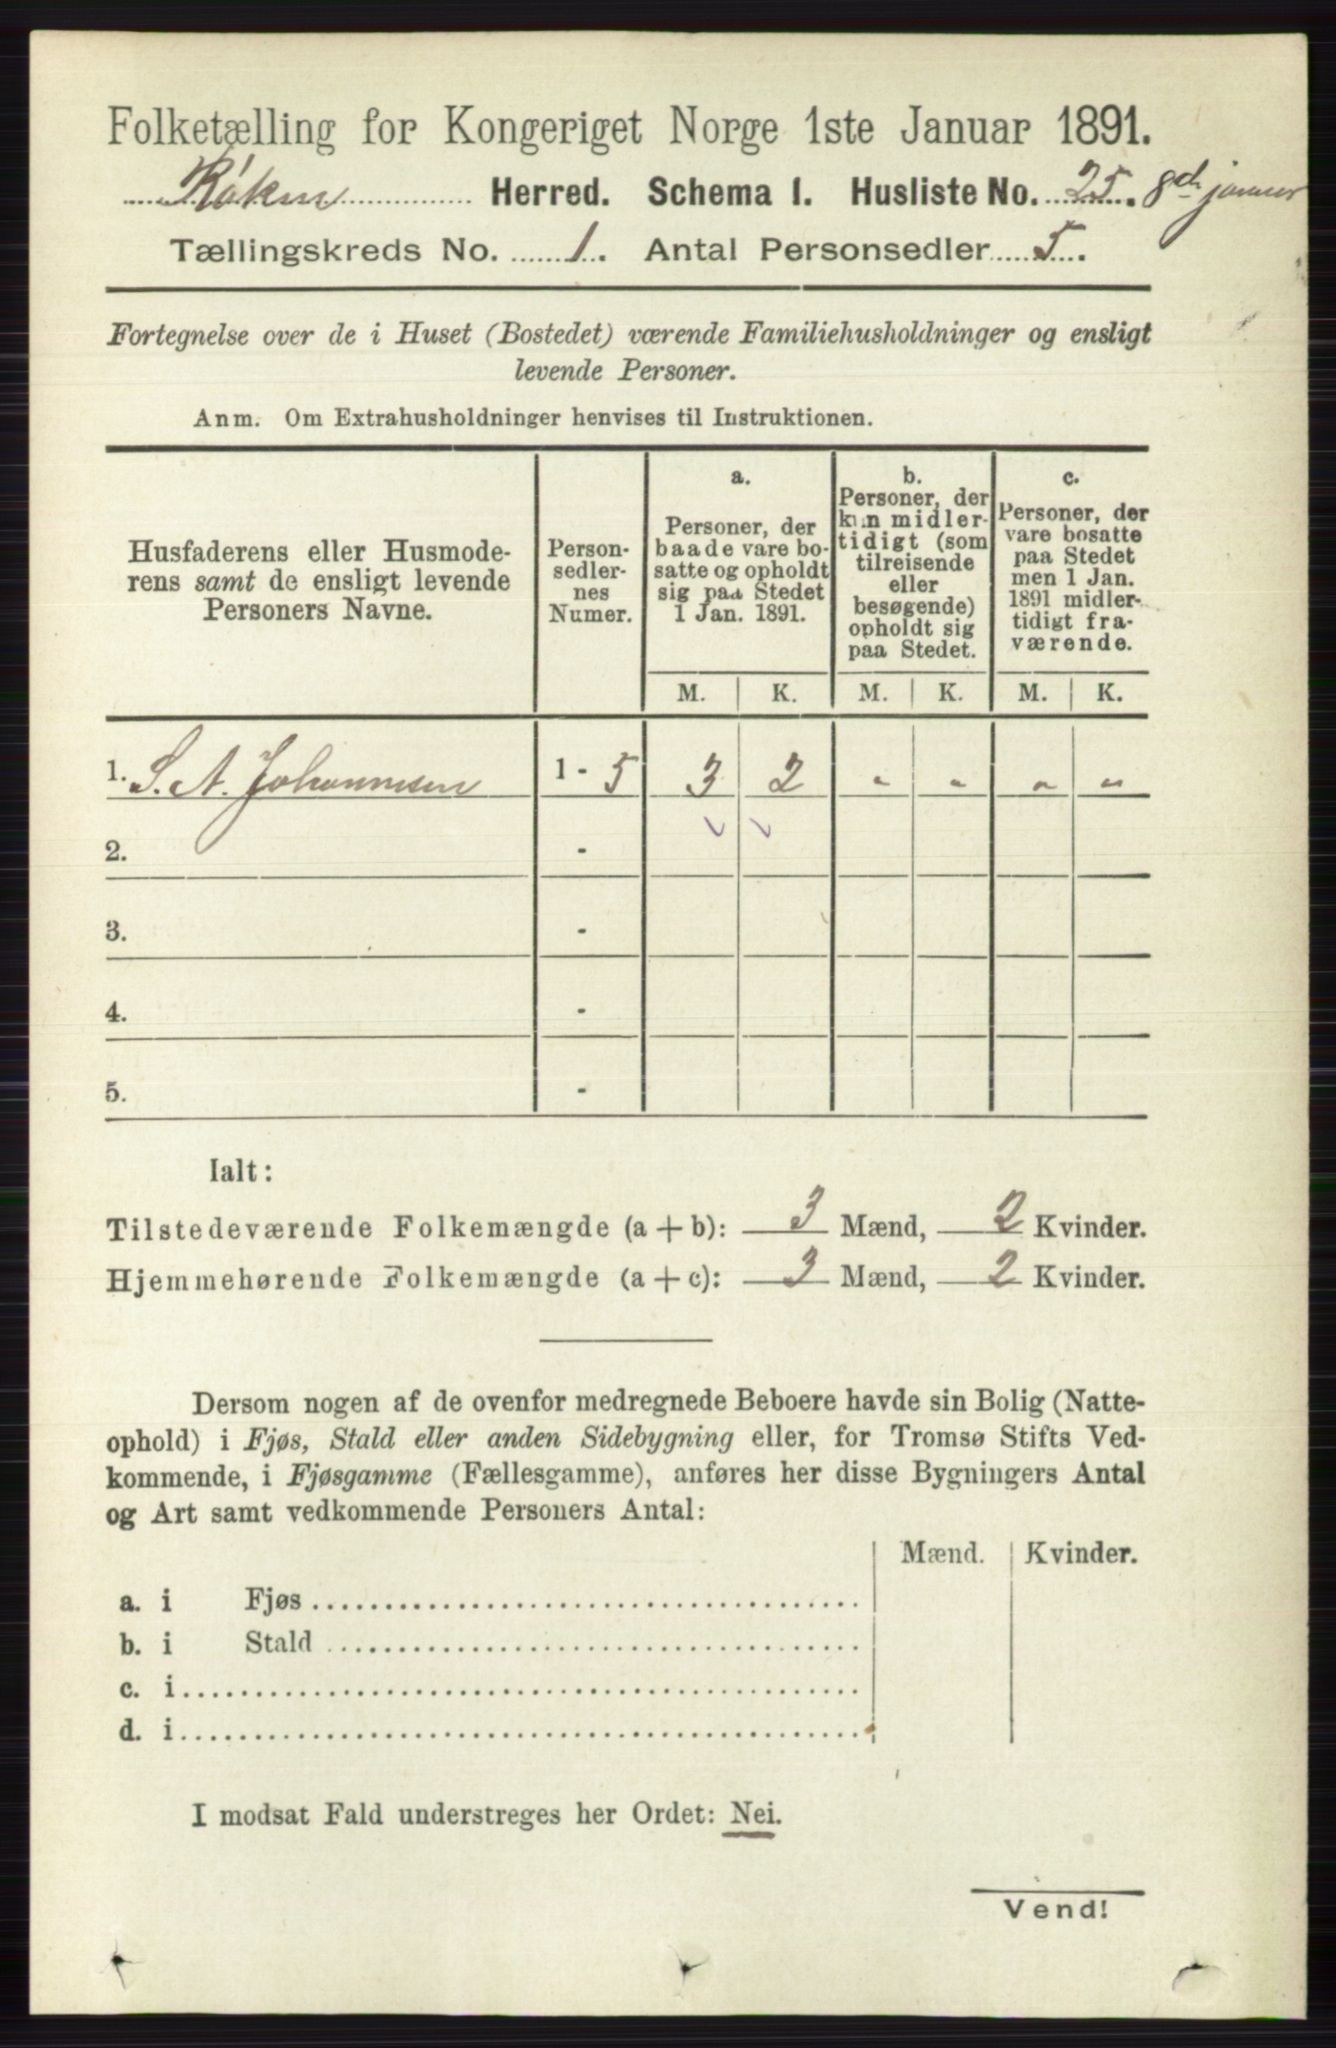 Folketælling for Kongeriget Norge 1ste Januar 1891.
Røken Herred. Schema 1. Husliste No. 25. 8de januar
Tællingskreds No. 1. Antal Personsedler 5.
Fortegnelse over de i Huset (Bostedet) værende Familiehusholdninger og ensligt
levende Personer.
Anm. Om Extrahusholdninger henvises til Instruktionen.
Husfaderens eller Husmode-
rens samt de ensligt levende
Personers Navne.
Person-
sedler-
nes
Numer.
a.
Personer, der
baade vare bo-
satte og opholdt
sig paa Stedet
1 Jan. 1891.
b.
Personer, der
kun midler-
tidigt (som
tilreisende
eller
besøgende)
opholdt sig
paa Stedet.
c.
Personer, der
vare bosatte
paa Stedet
men 1 Jan.
1891 midler-
tidigt fra-
værende.
M. K. M. K. M. K.
1. S. A. Johannesen 1 - 5 3 2 - - - -
2. -
3. -
4. -
5. -
Ialt:
Tilstedeværende Folkemængde (a + b): 3 Mænd, 2 Kvinder.
Hjemmehørende Folkemængde (a + c): 3 Mænd, 2 Kvinder.
Dersom nogen af de ovenfor medregnede Beboere havde sin Bolig (Natte-
ophold) i Fjøs, Stald eller anden Sidebygning eller, for Tromsø Stifts Ved-
kommende, i Fjøsgamme (Fællesgamme), anføres her disse Bygningers Antal
og Art samt vedkommende Personers Antal:
Mænd. Kvinder.
a. i Fjøs
b. i Stald
c. i
d. i
I modsat Fald understreges her Ordet: Nei.
Vend!